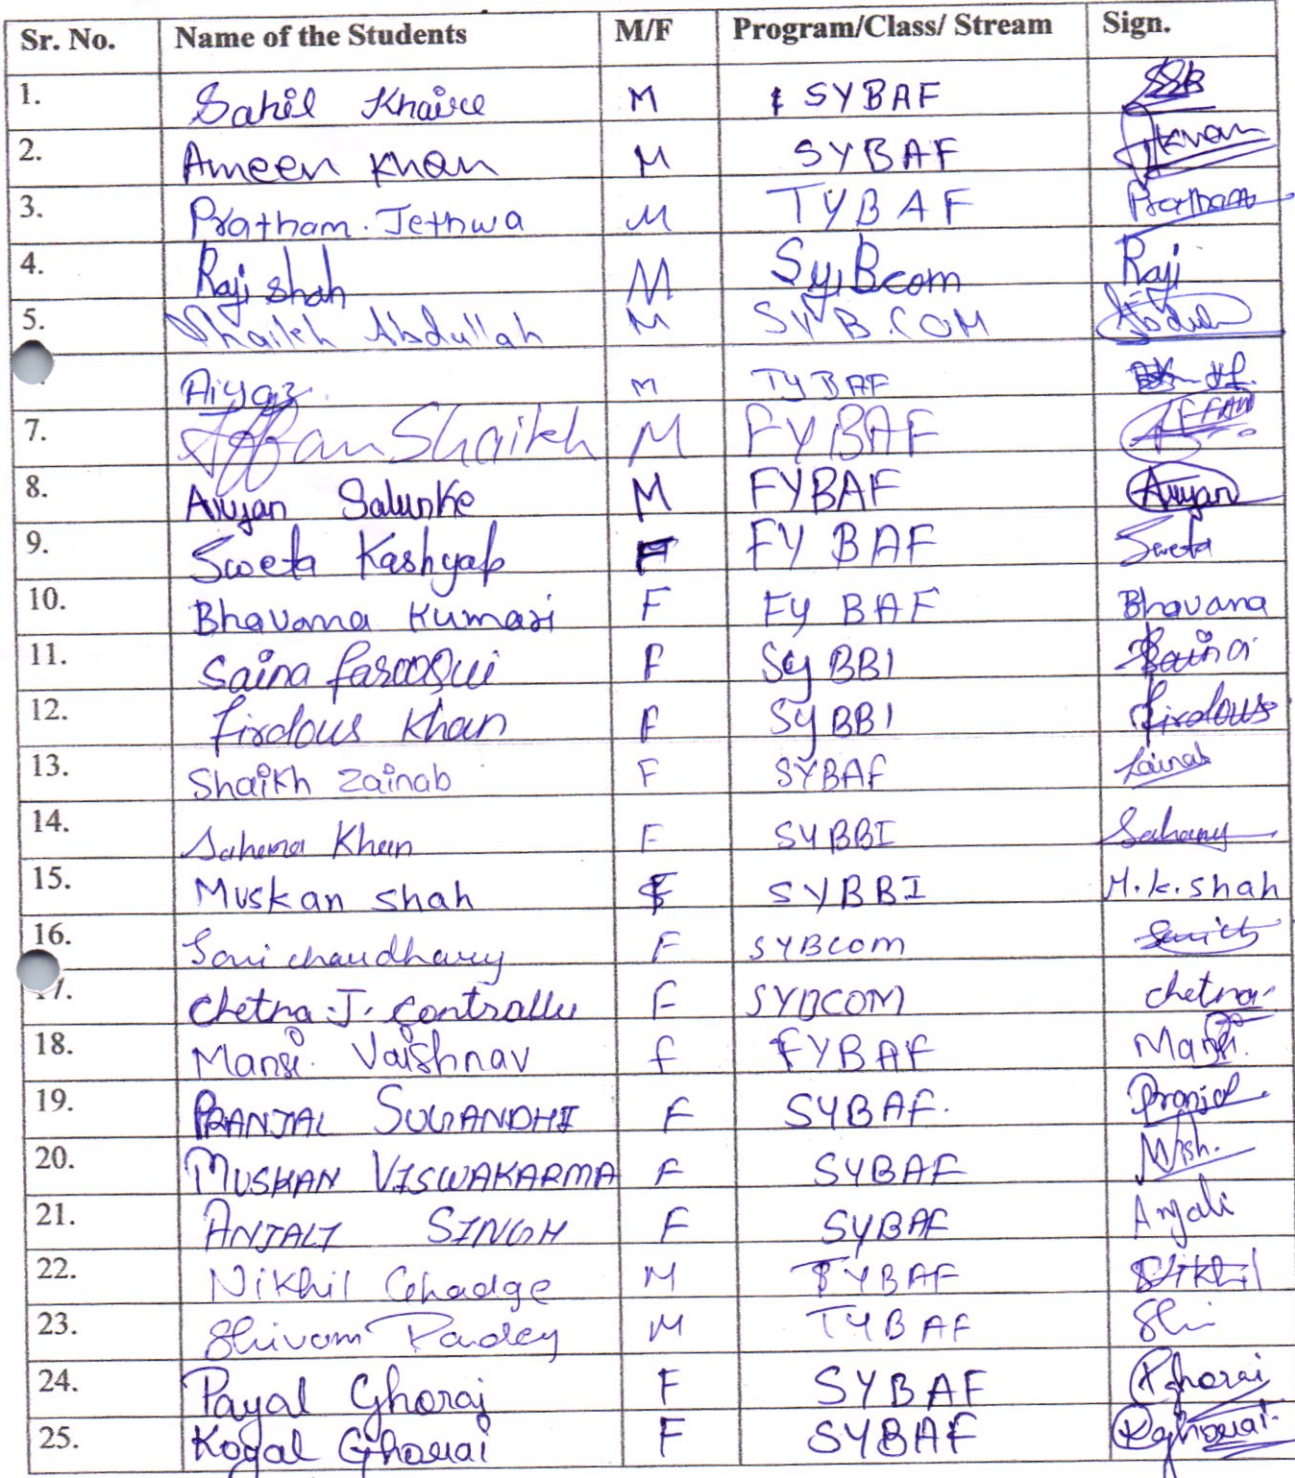 Sr. No. Name of the Students M/F Program/Class/ Stream Sign.
1. Sahil Khaire M SYBAF
2. Ameen Khan M SYBAF Khan
3. Pratham. Jethwa M TYBAF Pratham
4. Raji shah M Sy.Bcom Raji
5. Shaikh Abdullah M SY B.COM Abdul
Aiyaz. M TYBAF
7. Affan Shaikh M FYBAF AFFAN
8. Aryan Salunke M FYBAF Aryan
9. Sweta Kashyap F FY BAF Sweta
10. Bhavana Kumari F FY BAF Bhavana
11. Saina farooqui F SyBBI Saina
12. firdous Khan F SyBBI firdous
13. Shaikh Zainab F SYBAF Zainab
14. Khan F SYBBI
15. Muskan shah F SYBBI M.k.shah
16. Soni chaudhary F SYBcom
17. Chetna.J. Contrallu F SYBCOM chetna
18. Mansi. Vaishnav f FYBAF Mansi.
19. PRANJAL SUGANDHI F SYBAF. Pranjal
20. MUSKAN VISWAKARMA F SYBAF
21. ANJALI SINGH F SYBAF Anjali
22. Nikhil Ghadge M TYBAF Nikhil
23. Shivam Pandey M TYBAF Shi
24. Payal Ghorai F SYBAF Pghorai
25. Koyal Ghorai F SYBAF Kghorai